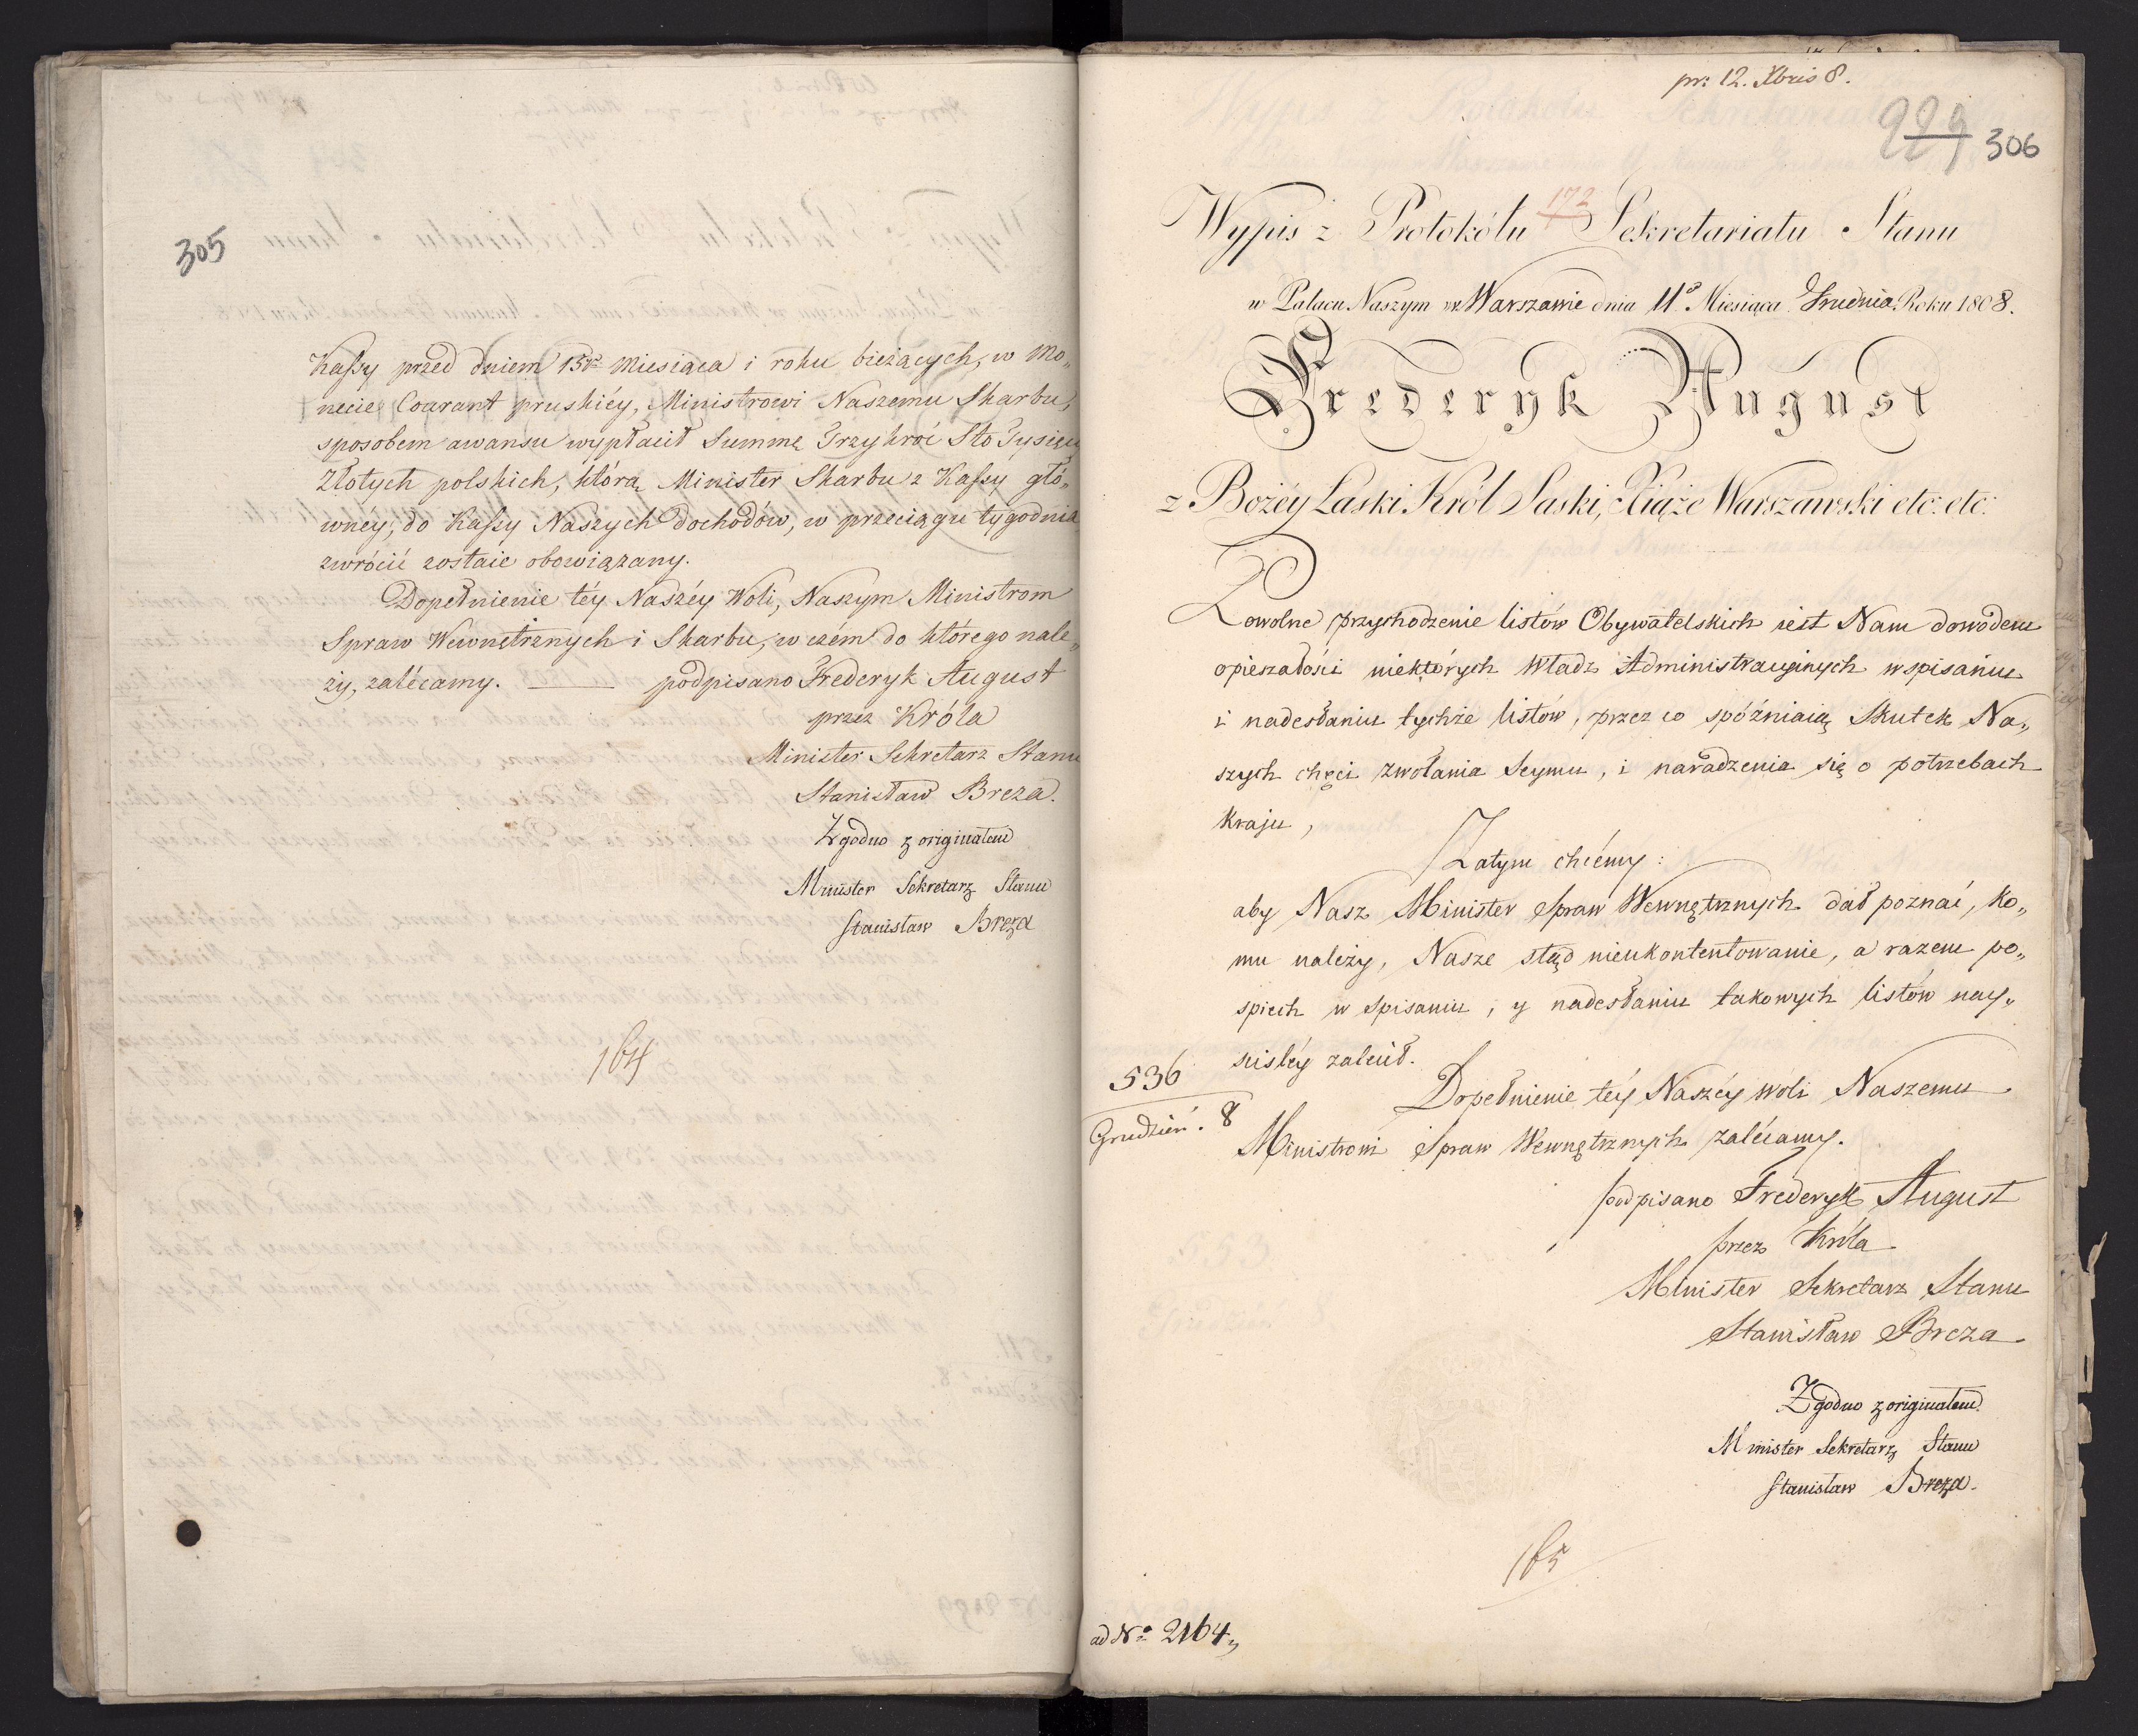 305
Kassy przed dniem 15ym miesiąca i roku bieżących, w Mo„
necie Courant pruskiéy, Ministrowi Naszemu Skarbu,
sposobem awansu wypłacił Summę Trzykroć Sto Tysięcy
Złotych polskich, którą Minister Skarbu z Kassy głó„
wnéy, do Kassy Naszych dochodów, w przeciągu tygodnia
zwrócić zostaie obowiązany.
Dopełnienie téy Naszéy Woli, Naszym Ministrom
Spraw Wewnętrznych i Skarbu, w czém do którego nale„
ży, zalécamy. podpisano Frederyk August
przez Króla
Minister Sekretarz Stanu
Stanisław Breza.
Zgodno z originałem
Minister Sekretarz Stanu
Stanisław Breza
164
pr: 12. Xbris 8.
229 306
172
Wypis z Protokółu Sekretariatu Stanu
w Pałacu Naszym w Warszawie dnia 11o Miesiąca Grudnia Roku 1808.
Frederyk August
z Bożéy Łaski Król Saski, Xiąże Warszawski etc: etc:
Powolne przychodzenie listów Obywatelskich iest Nam dowodem
opieszałości niektórych Władz Administracyinych w spisaniu
i nadesłaniu tychże listów, przez co spóźniaią Skutek Na„
szych chęci zwołania Seymu, i naradzenia się o potrzebach
kraju,
Zatym chcémy:
aby Nasz Minister Spraw Wewnętrznych dał poznać, ko„
mu należy, Nasze stąd nieukontentowanie, a razem po„
spiech w spisaniu, y nadesłaniu takowych listów nay„
scisléy zalecił.
536
Grudzień. 8
Dopełnienie téy Naszéy woli Naszemu
Ministrowi Spraw Wewnętrznych zalécamy.
podpisano Frederyk August
przez Króla
Minister Sekretarz Stanu
Stanisław Breza
Zgodno z originałem
Minister Sekretarz Stanu
Stanisław Breza.
165
ad No 2164